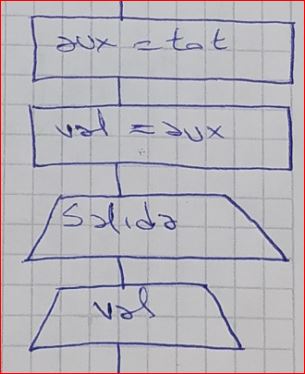 aux = tot
val = aux
Salida
val